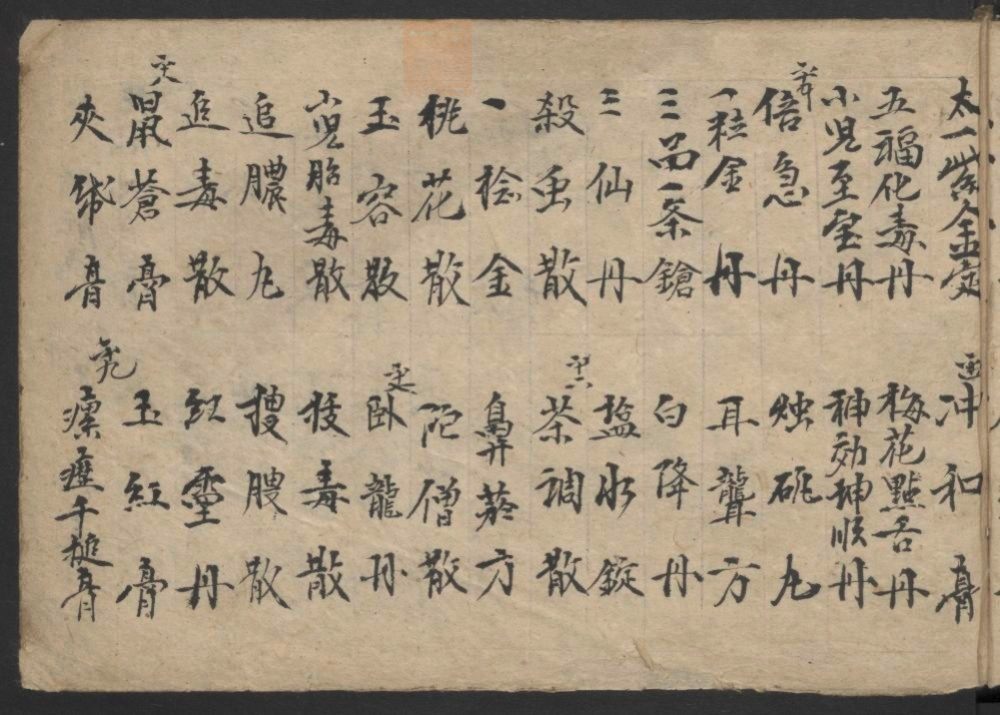 太一紫金錠
五福化毒丹
小児至宝丹
倍急丹
一粒金丹
三品一条鎗
三仙丹
殺虫散
一捻金
桃花散
玉容散
小児胎毒散
追膿丸
追毒散
鼠蒼膏
夾紙膏
冲和膏
梅花點舌丹
神効坤順丹
烛硯丸
耳聾方
白降丹
塩水錠
茶調散
鼻菸方
陀僧散
卧龍丹
拔毒散
搜膿散
紅靈丹
玉紅膏
瘰癧千槌膏